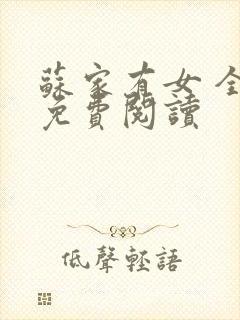 蘇家有女 全
免費閱讀
低聲輕語